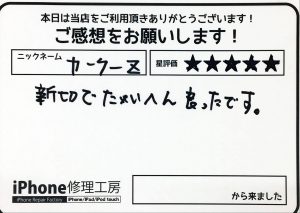 本日は当店をご利用頂きありがとうございます!
ご感想をお願いします!
ニックネーム カークーZ 星評価 ★★★★★
新切でたいへん良ったです。
iPhone修理工房
iPhone Repair Factory iPhone/iPad/iPod touch
から来ました